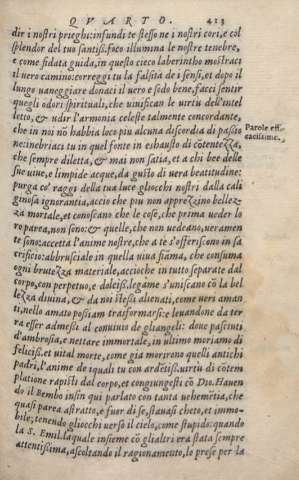 QVARTO. 413
dir i nostri prieghi: infundi te stesso ne i nostri cori, e col
splendor del tuo santiss. foco illumina le nostre tenebre,
e come fidata guida, in questo cieco laberintho mostraci
il vero camino: correggi tu la falsità de i sensi, et dopo il
lungo vaneggiare donaci il vero e sodo bene, facci sentir
quegli odori spirituali, che uiuifican le uirtù dell'intel
letto, & udir l'armonia celeste talmente concordante,
che in noi nō habbia loco più alcuna discordia di passio
ne: inebriaci tu in quel fonte in exhausto di cōtentezza,
che sempre diletta, & mai non satia, et a chi bee delle
sue uiue, e limpide acque, da gusto di uera beatitudine:
purga co' raggi della tua luce gliocchi nostri dalla cali
ginosa ignorantia, accio che più non apprezzino bellez-
za mortale, et conoscano che le cose, che prima ueder lo
ro parea, non sono: & quelle, che non uedeano, ueramen
te sono: accetta l'anime nostre, che a te s'offeriscono in sa
crificio: abbrusciale in quella uiua fiama, che consuma
ogni bruttezza materiale, accioche in tutto separate dal
corpo, con perpetuo, e dolciss. legame s'uniscano cō la bel
lezza diuina, & da noi stessi alienati, come uers aman
ti, nello amato possiam trasformarsi: e leuandone da ter
ra esser admessi al conuiuio de gliangeli: doue pasciuti
d'ambrosia, e nettare immortale, in ultimo moriamo di
feliciss. et uital morte, come già morirono quelli antichi
padri, l'anime de i quali tu con ardētiss. uirtù di cōtem
platione rapisti dal corpo, et congiungesti cō Dio. Hauen
do il Bembo insin qui parlato con tanta uehemētia, che
quasi parea astratto, e fuor di se, stauasi cheto, et immo-
bile; tenendo gliocchi uerso il cielo, come stupido: quando
la S. Emil. laquale insieme cō glialtri era stata sempre
attentissima, ascoltando il ragionamento, lo prese per la
Parole effi-
cacissime.